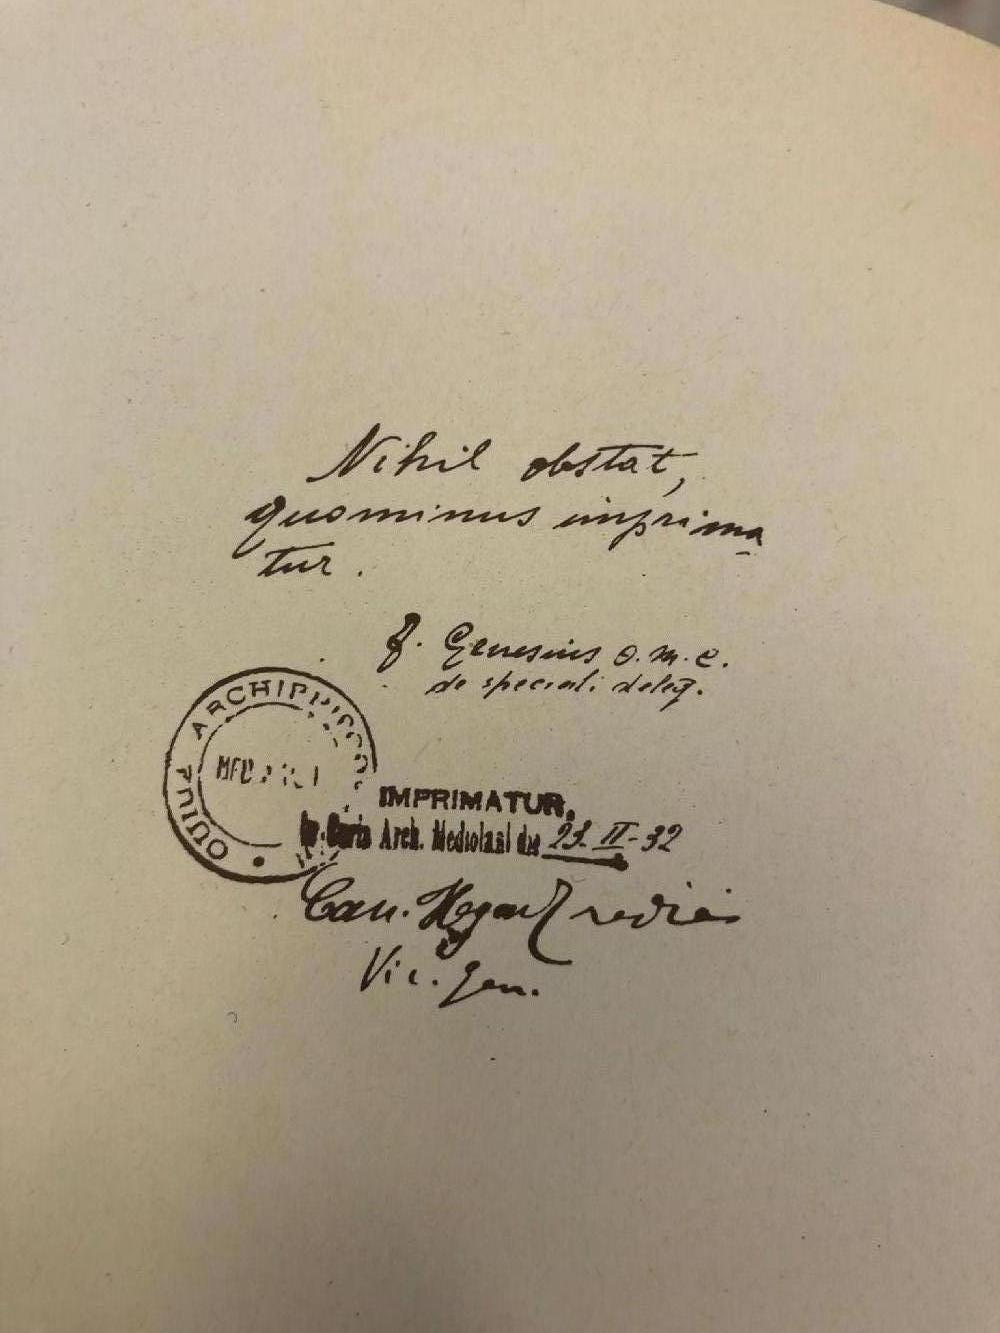 Nihil obstat,
quominus imprima
tur.
f. Genesius O.M.C.
de speciali deleg.
ARCHIEPISCO
MED
IMPRIMATUR,
Curia Arch. Mediolani die 23-II-32
Can.
Vic. Gen.